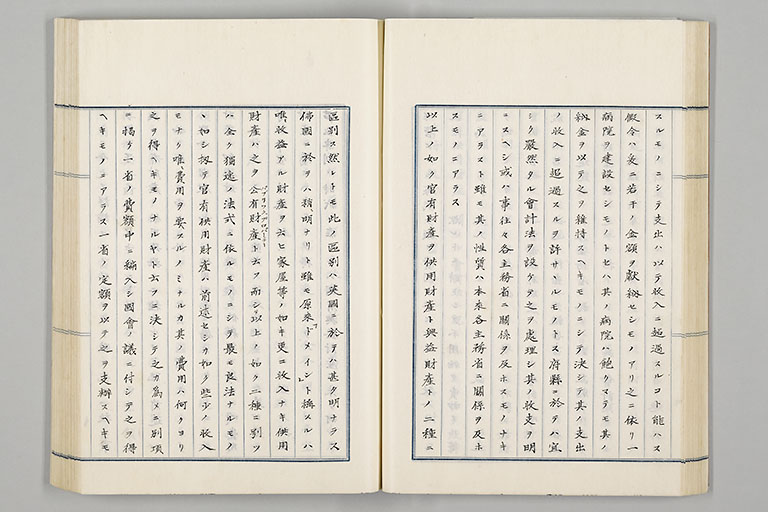 スルモノニシテ支出ハ以テ收入ニ超過スルコト能ハス
假令ハ爰ニ若干ノ金額ヲ獻納セシモノアリ之ニ依リ一
病院ヲ建設セシモノトセハ其ノ病院ハ飽クマテモ其ノ
納金ヲ以テ之ヲ維持スヘキモノニシテ決シテ其ノ支出
ノ收入ニ超過スルヲ許サヽルモノトス府縣ニ於テハ宜
シク嚴然タル會計法ヲ設ケテ之ヲ處理シ其ノ收支ヲ明
ニスヘシ或ハ事往々各主務省ニ關係ヲ及ホスモノナキ
ニアラスト雖モ其ノ性質ハ本來各主務省ニ關係ヲ及ホ
スモノニアラス
以上ノ如ク官有財產ヲ供用財產ト興益財產トノ二種ニ
區別ス然レトモ此ノ區別ハ英國ニ於テハ甚タ明ナラス
佛國ニ於テハ稍明ナリト雖モ原來「ドメイン」ト稱スルハ
唯收益アル財產ヲ云ヒ家屋等ノ如キ更ニ收入ナキ供用
財產ハ之ヲ公有財產ト云フ而シテ以上ノ如ク二種ニ別ツ
ハ全ク獨逸ノ法式ニ依ルモノニシテ最モ良法ナルモノ
ヽ如シ扨テ官有供用財產ハ前述セシカ如ク些少ノ收入
モナク唯費用ヲ要スルノミナルカ其ノ費用ハ何クヨリ
之ヲ得ヘキモノナルヤト云フニ決シテ之カ爲メニ別項
ニ揭ケ一省ノ費額中ニ編入シ國會ノ議ニ付シテ之ヲ得
ヘキモノニアラス一省ノ定額ヲ以テ之ヲ支辨スヘキモ